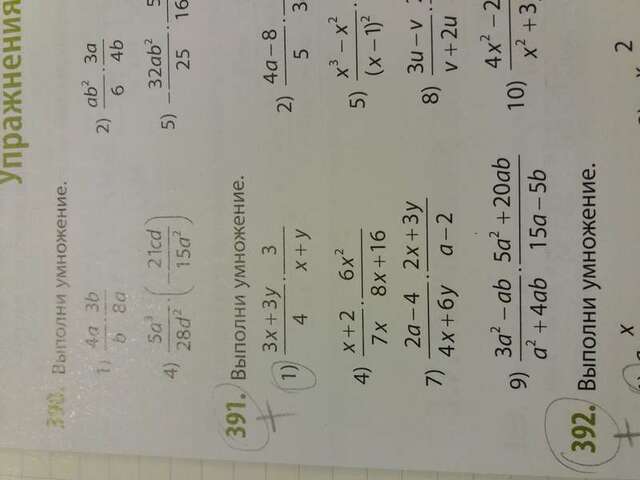 Упражнения
390. Выполни умножение.
1) 4a/b · 3b/8a 2) ab²/6 · 3a/4b
4) 5a³/28d² · (− 21cd/15a²) 5) −32ab²/25 · 5/16
391. Выполни умножение.
1) 3x+3y/4 · 3/x+y 2) 4a−8/5 · /3
4) x+2/7x · 6x²/8x+16 5) x³−x²/(x−1)² ·
7) 2a−4/4x+6y · 2x+3y/a−2 8) 3u−v/v+2u ·
9) 3a²−ab/a²+4ab · 5a²+20ab/15a−5b 10) 4x²−2/x²+3
392. Выполни умножение.
x 2